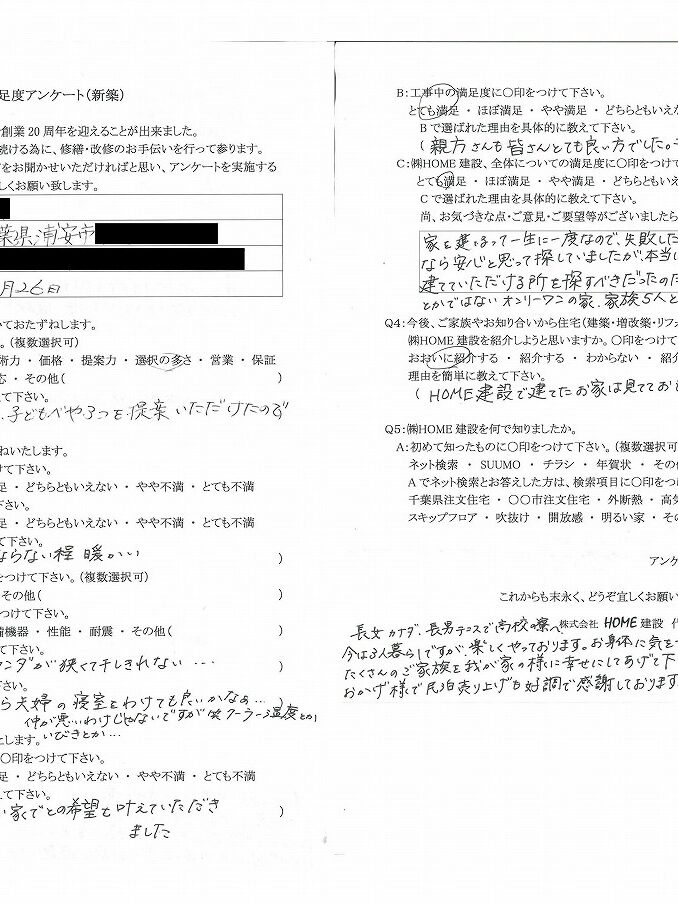 足度アンケート（新築）
創業 20 周年を迎えることが出来ました。
続ける為に、修繕・改修のお手伝いを行って参ります。
をお聞かせいただければと思い、アンケートを実施する
しくお願い致します。
葉県浦安市
月26日
いておたずねします。
。（複数選択可）
術力 ・ 価格 ・ 提案力 ・ 選択の多さ ・ 営業 ・ 保証
応 ・ その他（ ）
て下さい。
子どもべやふつを提案いただけたので
ねいたします。
けて下さい。
足 ・ どちらともいえない ・ やや不満 ・ とても不満
下さい。
足 ・ どちらともいえない ・ やや不満 ・ とても不満
て下さい。
ならない程 暖かい ）
をつけて下さい。（複数選択可）
その他（ ）
つけて下さい。
備機器 ・ 性能 ・ 耐震 ・ その他（ ）
て下さい。
ンダが狭くて干しきれない… ）
下さい。
ら夫婦の寝室をわけても良いかなぁ… ）
仲が悪いわけじゃないですが 笑 クーラー温度とか
いびきとか…
たします。
○印をつけて下さい。
足 ・ どちらともいえない ・ やや不満 ・ とても不満
て下さい。
い家くでとの希望も叶えていただき ）
ました
B：工事中の満足度に○印をつけて下さい。
とても満足 ・ ほぼ満足 ・ やや満足 ・ どちらともいえな
B で選ばれた理由を具体的に教えて下さい。
（ 親方さんも皆さんとても良い方でした。
C：㈱HOME 建設、全体についての満足度に○印をつけて
とても満足 ・ ほぼ満足 ・ やや満足 ・ どちらともいえ
C で選ばれた理由を具体的に教えて下さい。
尚、お気づきな点・ご意見・ご要望等がございましたら
家を建るって一生に一度なので、失敗した
なら安心と思って探していましたが、本当に
建てていただける所を探すべきだったのだ
とかではないオンリーワンの家、家族5人と
Q4：今後、ご家族やお知り合いから住宅（建築・増改築・リフォ
㈱HOME 建設を紹介しようと思いますか。○印をつけて
おおいに紹介する ・ 紹介する ・ わからない ・ 紹介
理由を簡単に教えて下さい。
（ HOME建設で建てたお家は見ておど
Q5：㈱HOME 建設を何で知りましたか。
A：初めて知ったものに○印をつけて下さい。（複数選択可
ネット検索 ・ SUUMO ・ チラシ ・ 年賀状 ・ その他
A でネット検索とお答えした方は、検索項目に○印をつけ
千葉県注文住宅 ・ ○○市注文住宅 ・ 外断熱 ・ 高気
スキップフロア ・ 吹抜け ・ 開放感 ・ 明るい家 ・ その
アンケ
これからも末永く、どうぞ宜しくお願い
株式会社 HOME 建設 代
長女 カナダ、長男 テニスで高校の寮へ
今は3人暮らしですが、楽しくやっております。お身体に気をつ
たくさんのご家族を我が家の様に幸せにしてあげて下
おかげ様で民泊売り上げも好調で感謝しております